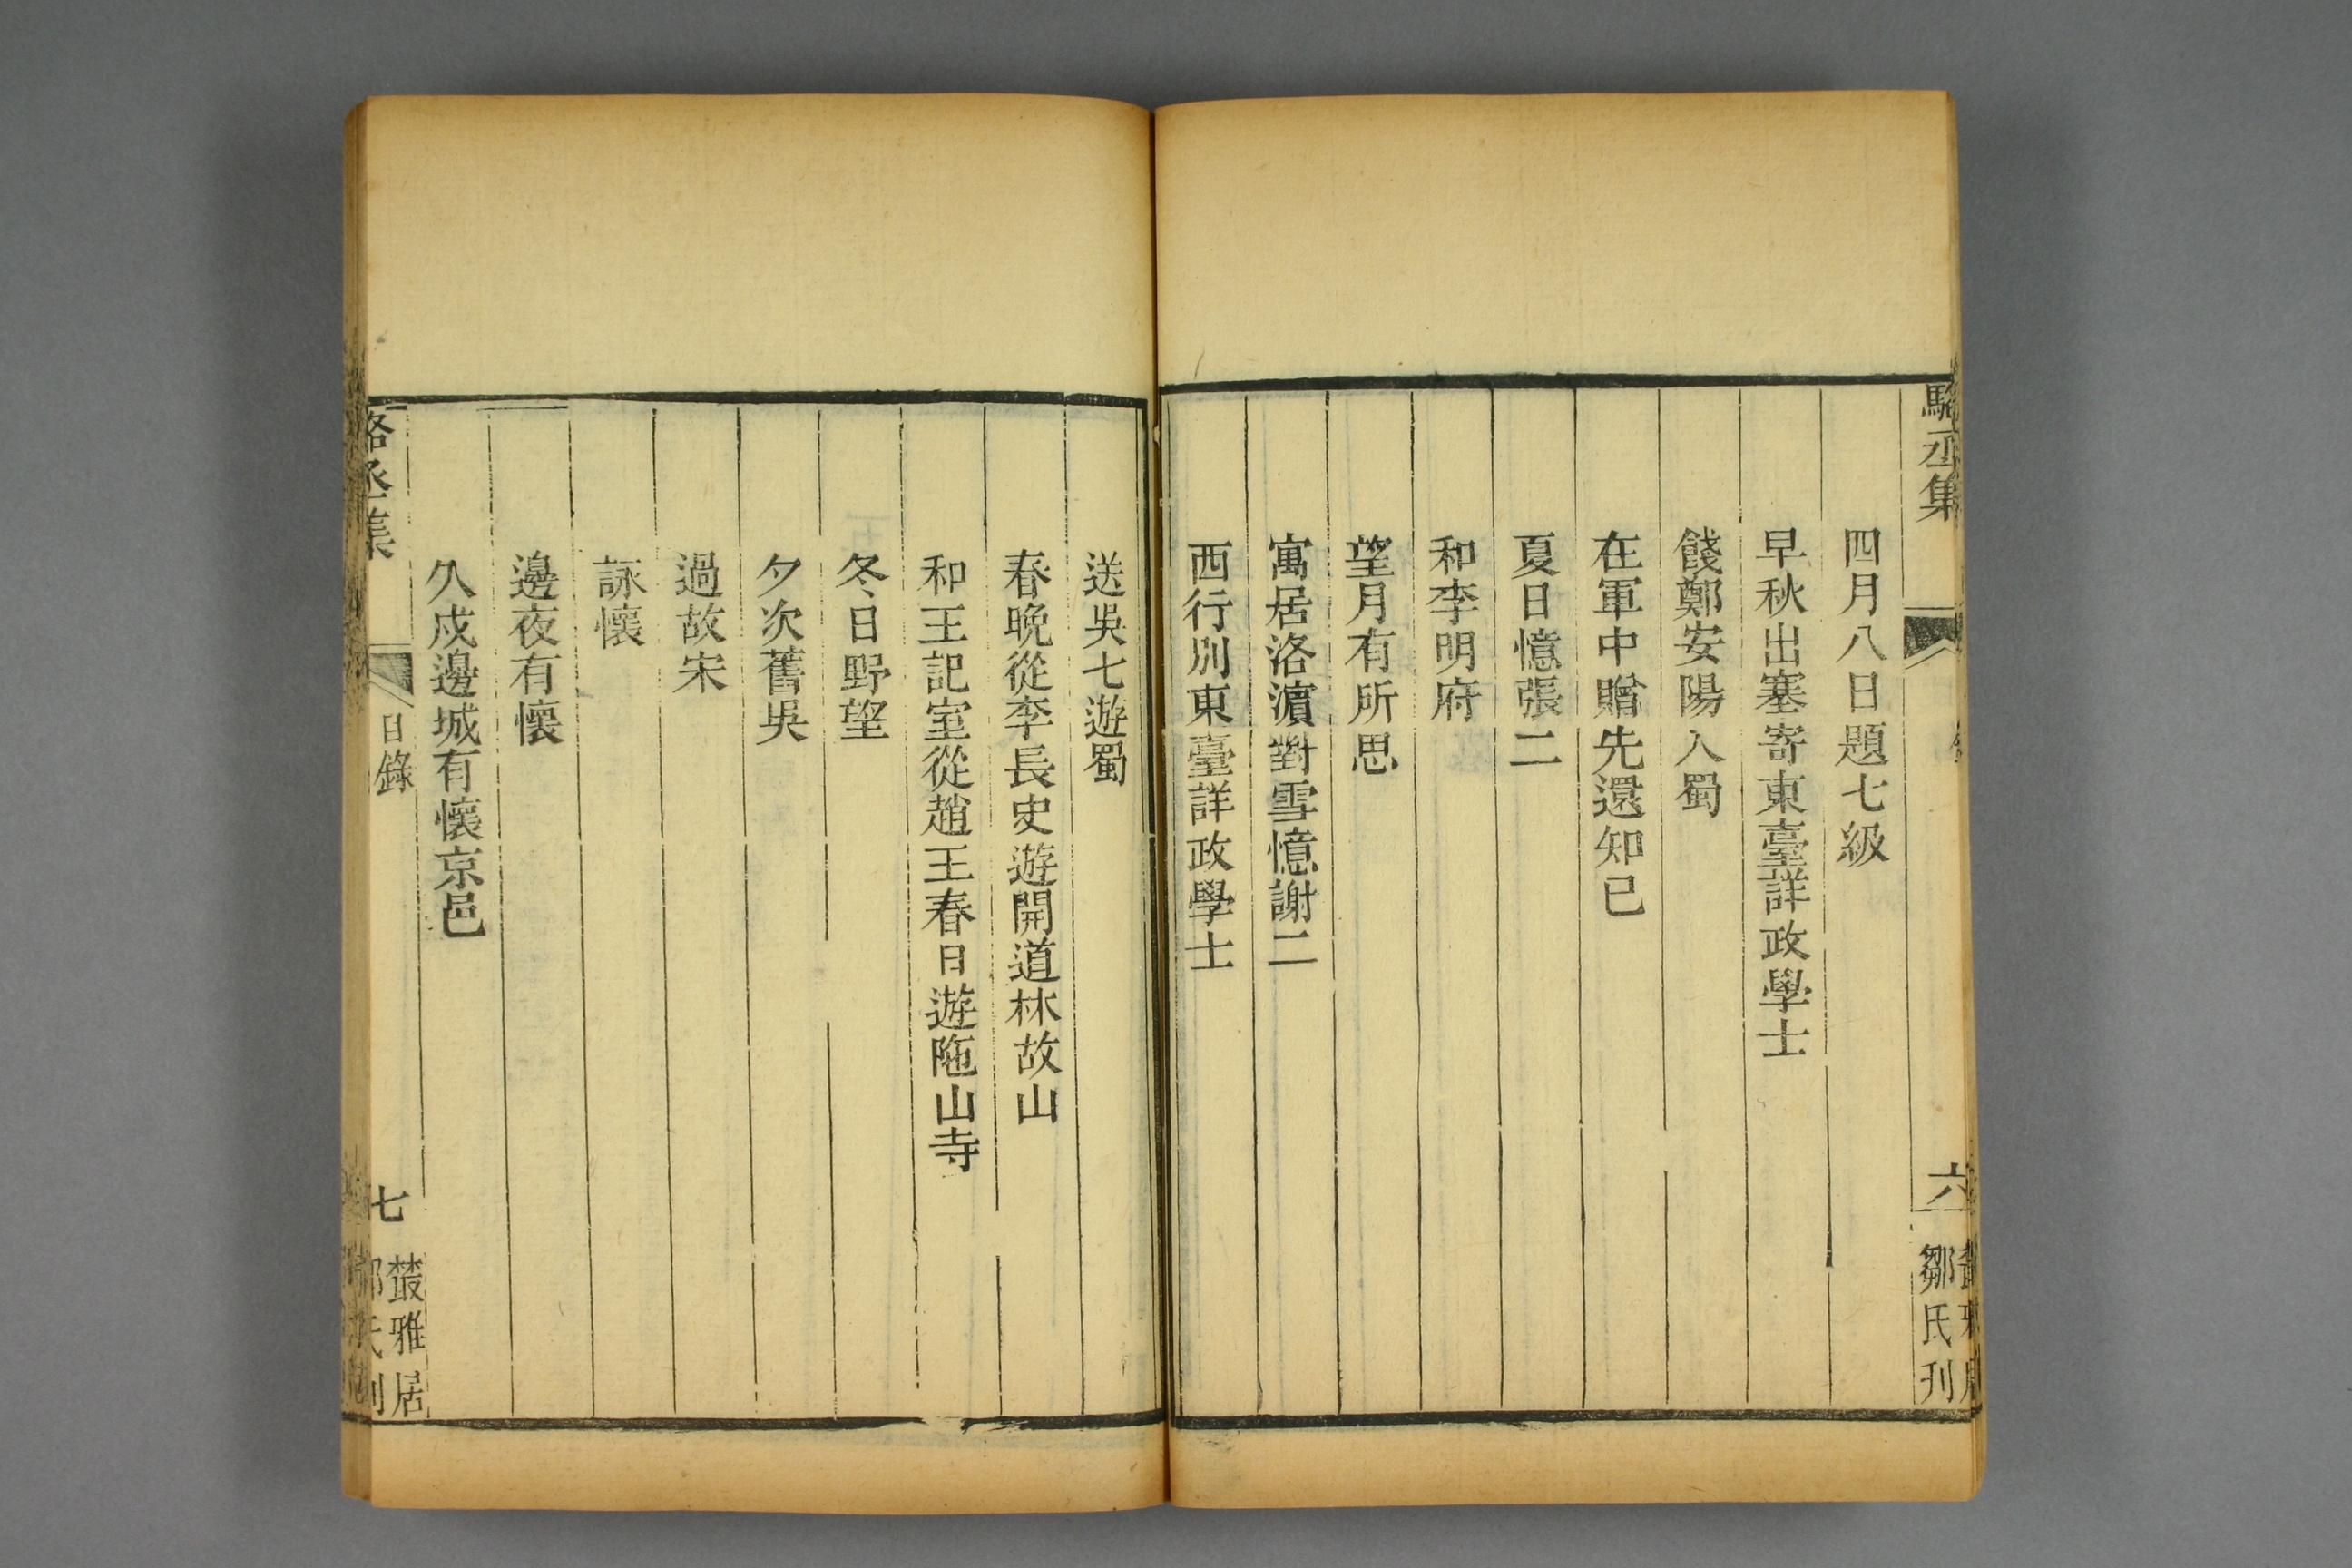 駱丞集
六
鄒氏刊
四月八日題七級
早秋出塞寄東臺詳政學士
餞鄭安陽入蜀
在軍中贈先還知已
夏日憶張二
和李明府
望月有所思
寓居洛濵對雪憶謝二
西行別東臺詳政學士
送吳七遊蜀
春晚從李長史遊開道林故山
和王記室從趙王春日遊陁山寺
冬日野望
夕次舊吳
過故宋
詠懷
邊夜有懷
久戍邊城有懷京邑
駱丞集
目錄
七
叢雅居